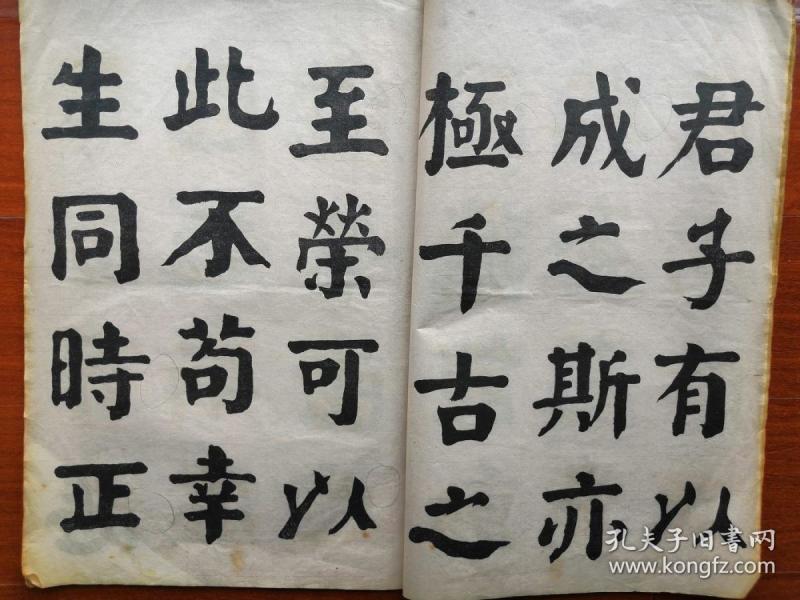 君子有以
成之斯亦
極千古之
至榮可以
此不苟幸
生同時正
孔夫子旧書网
www.kongfz.com